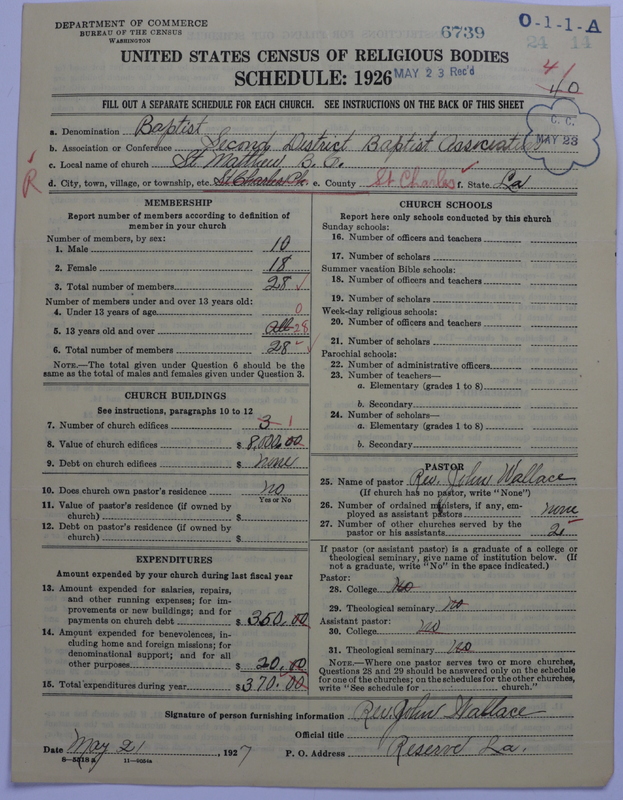 DEPARTMENT OF COMMERCE
BUREAU OF THE CENSUS
WASHINGTON
6739
O-1-1-A
24 14
UNITED STATES CENSUS OF RELIGIOUS BODIES
SCHEDULE: 1926
MAY 23 Rec'd
4/
40
FILL OUT A SEPARATE SCHEDULE FOR EACH CHURCH. SEE INSTRUCTIONS ON THE BACK OF THIS SHEET
C. C.
MAY 23
a. Denomination Baptist
b. Association or Conference Second District Baptist Association
c. Local name of church St Matthew B. C.
R
d. City, town, village, or township, etc. St Charles Ph. e. County St Charles f. State La
MEMBERSHIP
Report number of members according to definition of
member in your church
Number of members, by sex:
1. Male 10
2. Female 18
3. Total number of members 28
Number of members under and over 13 years old:
4. Under 13 years of age 0
5. 13 years old and over All 28
6. Total number of members 28
NOTE.—The total given under Question 6 should be
same as the total of males and females given under Question 3.
CHURCH BUILDINGS
See instructions, paragraphs 10 to 12
7. Number of church edifices 3 1
8. Value of church edifices $ 8,000.00
9. Debt on church edifices $ none
10. Does church own pastor's residence no
Yes or No
11. Value of pastor's residence (if owned by
church) $
12. Debt on pastor's residence (if owned by
church) $
EXPENDITURES
Amount expended by your church during last fiscal year
13. Amount expended for salaries, repairs,
and other running expenses; for im-
provements or new buildings; and for
payments on church debt $ 350.00
14. Amount expended for benevolences, in-
cluding home and foreign missions; for
denominational support; and for all
other purposes $ 20.00
15. Total expenditures during year $ 370.00
CHURCH SCHOOLS
Report here only schools conducted by this church
Sunday schools:
16. Number of officers and teachers
17. Number of scholars
Summer vacation Bible schools:
18. Number of officers and teachers
19. Number of scholars
Week-day religious schools:
20. Number of officers and teachers
21. Number of scholars
Parochial schools:
22. Number of administrative officers
23. Number of teachers—
a. Elementary (grades 1 to 8)
b. Secondary
24. Number of scholars—
a. Elementary (grades 1 to 8)
b. Secondary
PASTOR
25. Name of pastor Rev. John Wallace
(If church has no pastor, write "None")
26. Number of ordained ministers, if any, em-
ployed as assistant pastors none
27. Number of other churches served by the
pastor or his assistants 2
If pastor (or assistant pastor) is a graduate of a college or
theological seminary, give name of institution below. (If
not a graduate, write "No" in the space indicated.)
Pastor:
28. College No
29. Theological seminary no
Assistant pastor:
30. College no
31. Theological seminary No
NOTE.—Where one pastor serves two or more churches,
Questions 28 and 29 should be answered only on the schedule
for one of the churches; on the schedules for the other churches,
write "See schedule for church."
Signature of person furnishing information Rev. John Wallace
Official title
Date May 21, 1927 P. O. Address Reserve La.